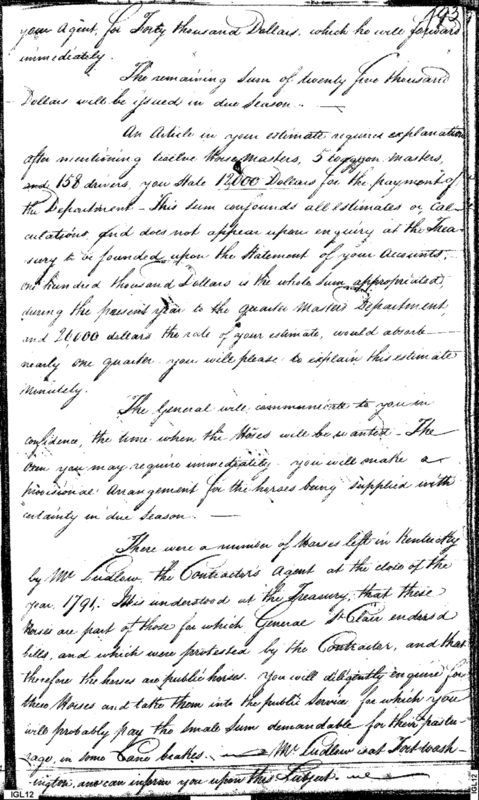 193
your Agent, for Forty thousand Dollars, which he will forward
immediately.
The remaining sum of twenty five thousand
Dollars will be issued in due season. —
An Article in your estimate requires explanation
after mentioning twelve Horse Masters, 5 Waggon masters,
and 158 drivers, you state 12000 Dollars for the payment of
the Department — This sum confounds all estimates or Cal-
culations, and does not appear upon enquiry at the Trea-
sury to be founded upon the Statement of your Accounts,
one hundred thousand Dollars is the whole sum appropriated,
during the present year to the Quarter Masters Department,
and 26000 dollars the rate of your estimate, would absorb
nearly one quarter you will please to explain this estimate
minutely.
The General will communicate to you in
confidence, the time when the Horses will be wanted — The
Oxen you may require immediately you will make a
provisional Arrangement for the horses being supplied with
certainty in due Season —
There were a number of Horses left in Kentucky
by Mr Ludlow, the Contractors Agent at the close of the
year, 1791. It is understood at the Treasury, that these
Horses are part of those for which General St Clair endorsd
bills, and which were protested by the Contractor, and that
therefore the horses are public horses. you will diligently enquire for
these Horses and take them into the public Service for which you
will probably pay the small sum demandable for their pastu-
rage, in some Cane brakes. — Mr Ludlow is at Fort Wash-
ington, and can inform you upon this Subject.
IGL12
IGL12